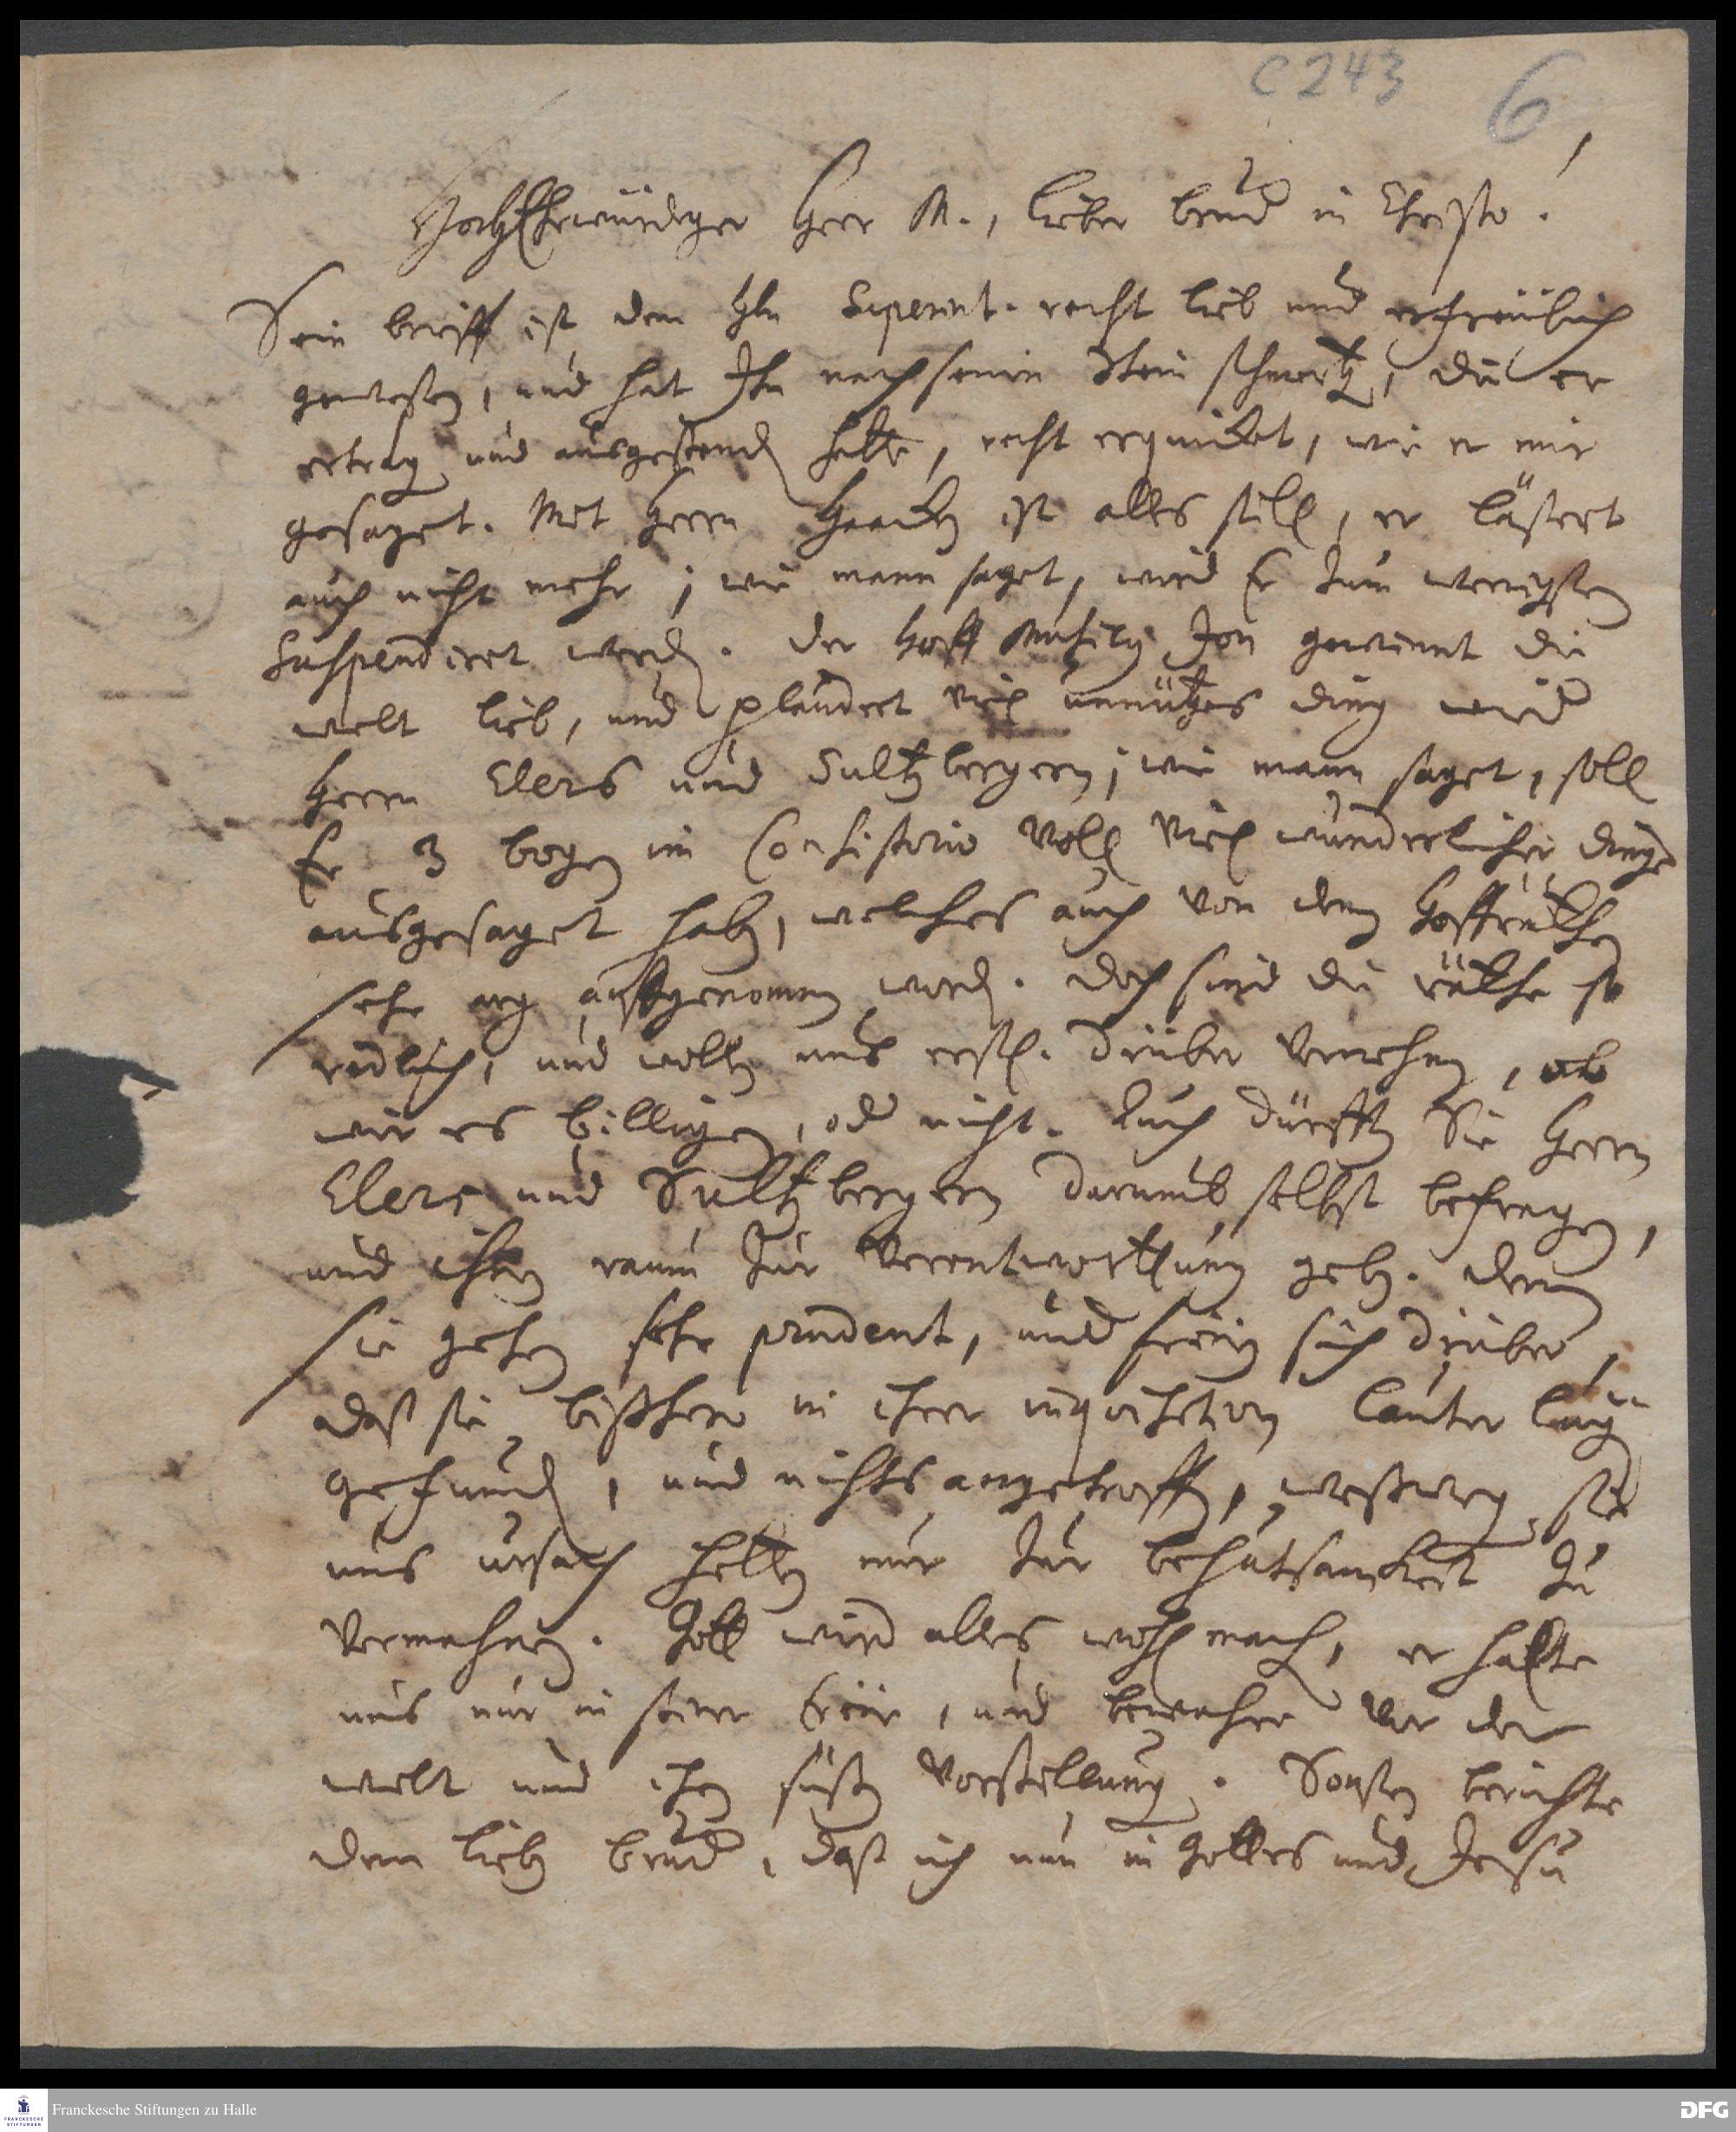 C 243 6
HochEhrwürdiger Herr M., lieber brud in Christo!
Sein brieff ist dem Hln Superint. recht lieb und erfreülich
gewesen, und hat Ihn nach seinen Stein schmertz, die er
ertrag und ausgestand hatte, recht erquicket, wie er mir
gesaget. Mit Herrn ist alles still, er lästert
auch nicht mehr; wie mann saget, wird Er zum wenigsten
Suspendiret werd. Der Hoff gewinnt die
welt lieb, und plaudert viel unnützes ding wid
Herrn Elers und Sultzbergern; wie mann saget, soll
Er 3 bogen im Consistorio voll viel wunderlicher dinge
ausgesaget hab, welches auch von den Hoffräthen
sehr arg auffgenomen word. Doch sind die räthe so
redlich, und wolln uns erstl. drüber vernehmen, ob
wir es billigen, od nicht. Auch dürfften Sie Herrn
Elers und Sultzbergern darumb selbst befragen,
und ihnen raum zur Verantworttung geben. denn
sie gehen sehr prudent, und freüen sich drüber,
daß sie bißhero in ihrer inquisition lauter lügen
gefunden, und nichts angetroffen, weßweg sie
uns ursach hetten nur zur behutsamkeit zu
vermahnen. Gott wird alles wohl mach, er halte
uns nur in seiner treüe, und bewahre vor der
welt und ihrer süßen Vorstellung. Sonsten berichte
dem lieben brud, daß ich nun in Gottes und Jesu
Franckesche Stiftungen zu Halle
FRANCKESCHE STIFTUNGEN
DFG